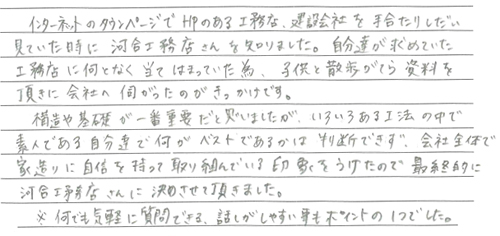 インターネットのタウンページでHPのある工務店、建設会社を手当たりしだい
見ていた時に河合工務店さんを知りました。自分達が求めていた
工務店に何となく当てはまっていた為、子供と散歩がてら資料を
頂きに会社へ伺がったのがきっかけです。
構造や基礎が一番重要だと思いましたが、いろいろある工法の中で
素人である自分達で何がベストであるかは判断できず、会社全体で
家造りに自信を持って取り組んでいる印象をうけたので最終的に
河合工務店さんに決めさせて頂きました。
※何でも気軽に質問できる、話しがしやすい事もポイントの1つでした。